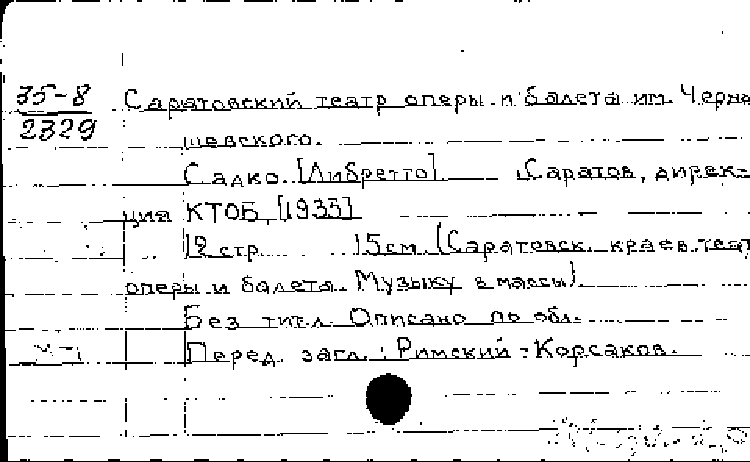 35-8
2329
Саратовский театр оперы и балета им. Черны
шевского.
Садко. [Либретто]. Саратов, дирек-
ция КТОБ, [1935]
12 стр. 15 см. (Саратовск. краев. теат
оперы и балета. Музыку в массы).
Без титл. Описано по обл.
Перед загл.: Римский-Корсаков.